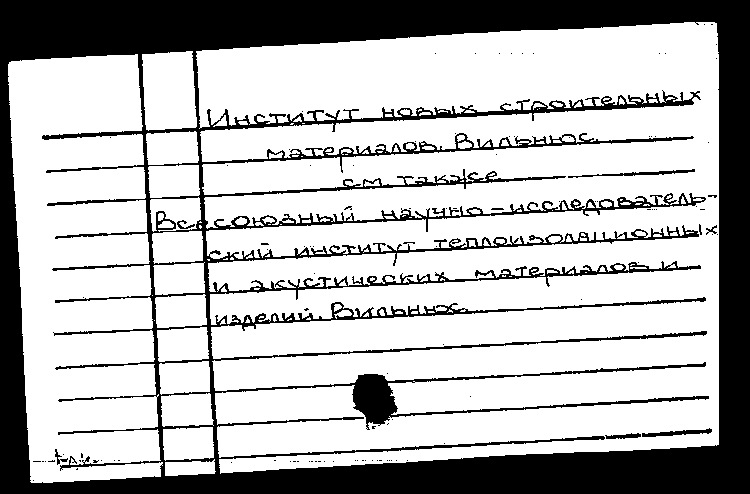 Институт новых строительных
материалов. Вильнюс.
см. также
Всесоюзный научно-исследователь-
ский институт теплоизоляционных
и акустических материалов и
изделий. Вильнюс.